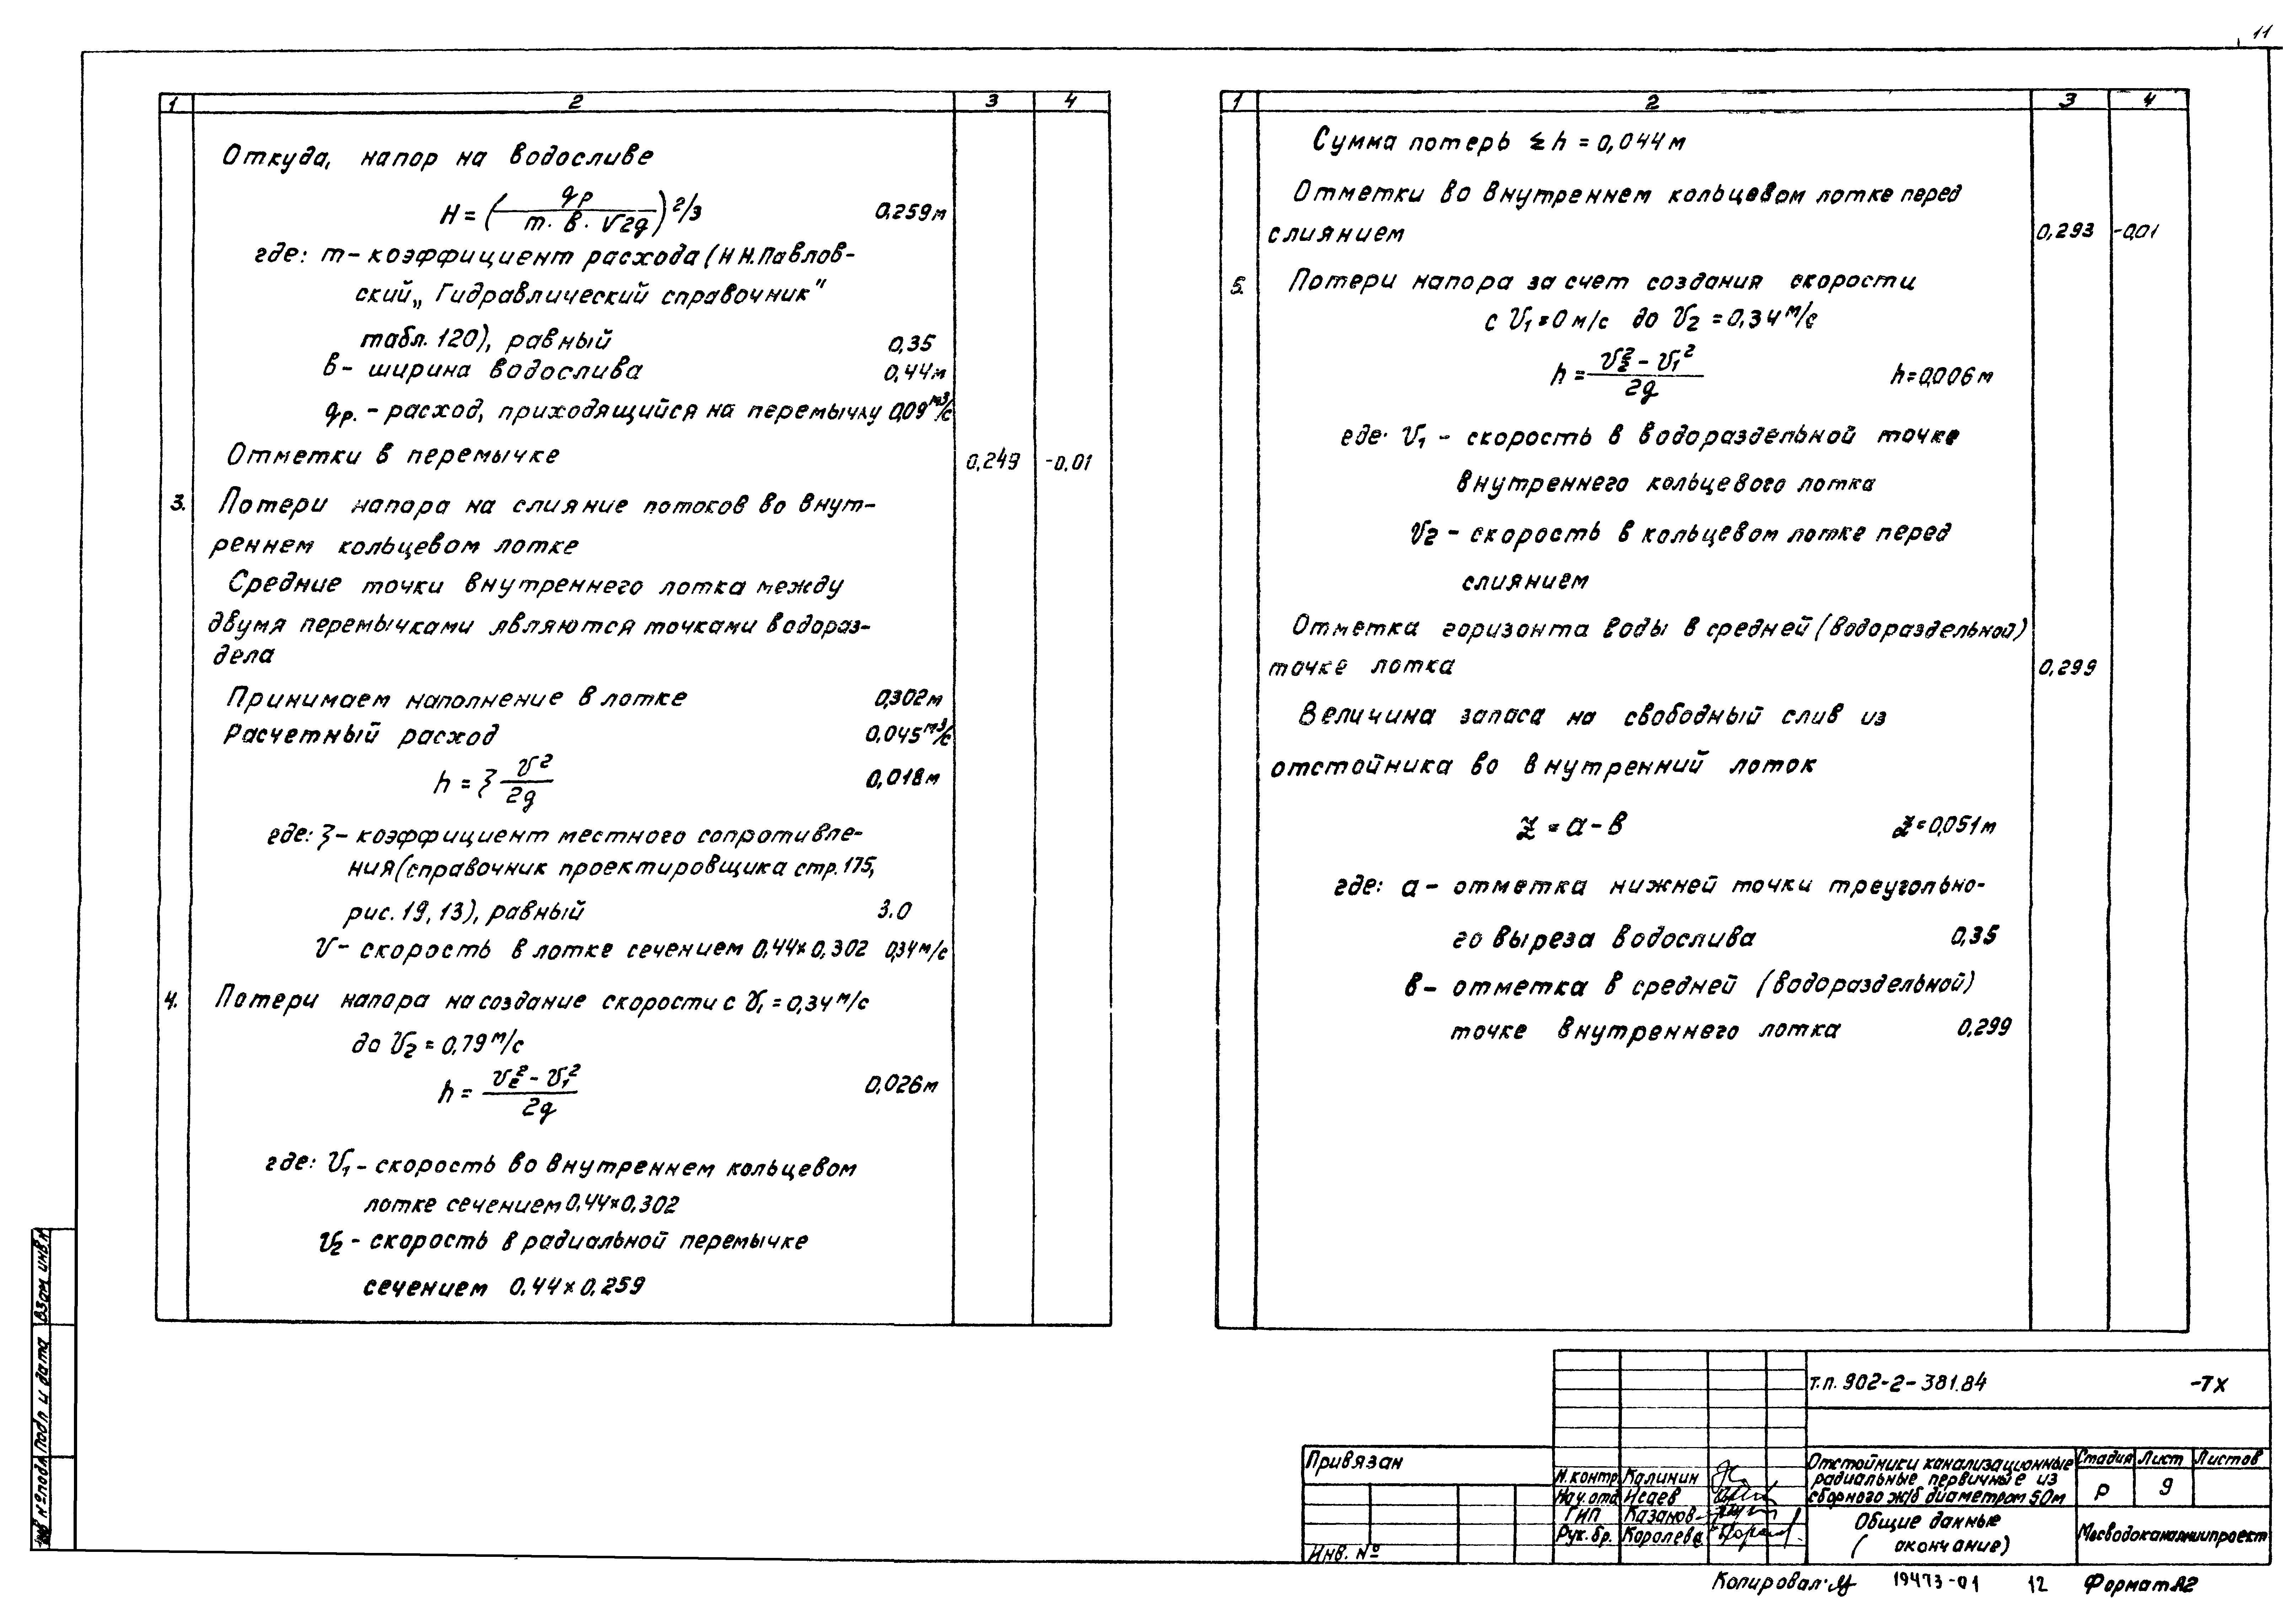 11
1 2 3 4
Откуда, напор на водосливе
H = (qр / m · в · √2g)^2/3 0,259м
где: m – коэффициент расхода (Н Н.Павлов-
ский „ Гидравлический справочник"
табл. 120), равный 0,35
в – ширина водослива 0,44м
qр. – расход, приходящийся на перемычку 0,09 м3/с
Отметки в перемычке 0,249 -0,01
3. Потери напора на слияние потоков во внут-
реннем кольцевом лотке
Средние точки внутреннего лотка между
двумя перемычками являются точками водораз-
дела
Принимаем наполнение в лотке 0,302м
Расчетный расход 0,045 м3/с
h = ξ v² / 2g 0,018м
где: ξ – коэффициент местного сопротивле-
ния (справочник проектировщика стр. 175,
рис. 19,13), равный 3.0
v – скорость в лотке сечением 0,44×0,302 0,34 м/с
4. Потери напора на создание скорости с v1 = 0,34 м/с
до v2 = 0,79 м/с
h = v2² – v1² / 2g 0,026м
где: v1 – скорость во внутреннем кольцевом
лотке сечением 0,44×0,302
v2 – скорость в радиальной перемычке
сечением 0,44×0,259
1 2 3 4
Сумма потерь Σh = 0,044м
Отметки во внутреннем кольцевом лотке перед
слиянием 0,293 -0,01
5. Потери напора за счет создания скорости
с v1 = 0 м/с до v2 = 0,34 м/с
h = v2² – v1² / 2g h=0,006м
где· v1 – скорость в водораздельной точке
внутреннего кольцевого лотка
v2 – скорость в кольцевом лотке перед
слиянием
Отметка горизонта воды в средней (водораздельной)
точке лотка 0,299
Величина запаса на свободный слив из
отстойника во внутренний лоток
Z = а – в Z = 0,051м
где: а – отметка нижней точки треугольно-
го выреза водослива 0,35
в – отметка в средней (водораздельной)
точке внутреннего лотка 0,299
т.п. 902-2-381.84 -ТХ
Привязан
Инв. №
Н.контр Калинин
Нач.отд Исаев
ГИП Казанов
Рук.бр. Королева
Отстойники канализационные
радиальные первичные из
сборного ж/б диаметром 50м
Стадия Лист Листов
Р 9
Общие данные
(окончание)
Мосводоканалниипроект
Копировал: 19473-01 12 Формат А2
Инв № подл Подп и дата Взам инв.№